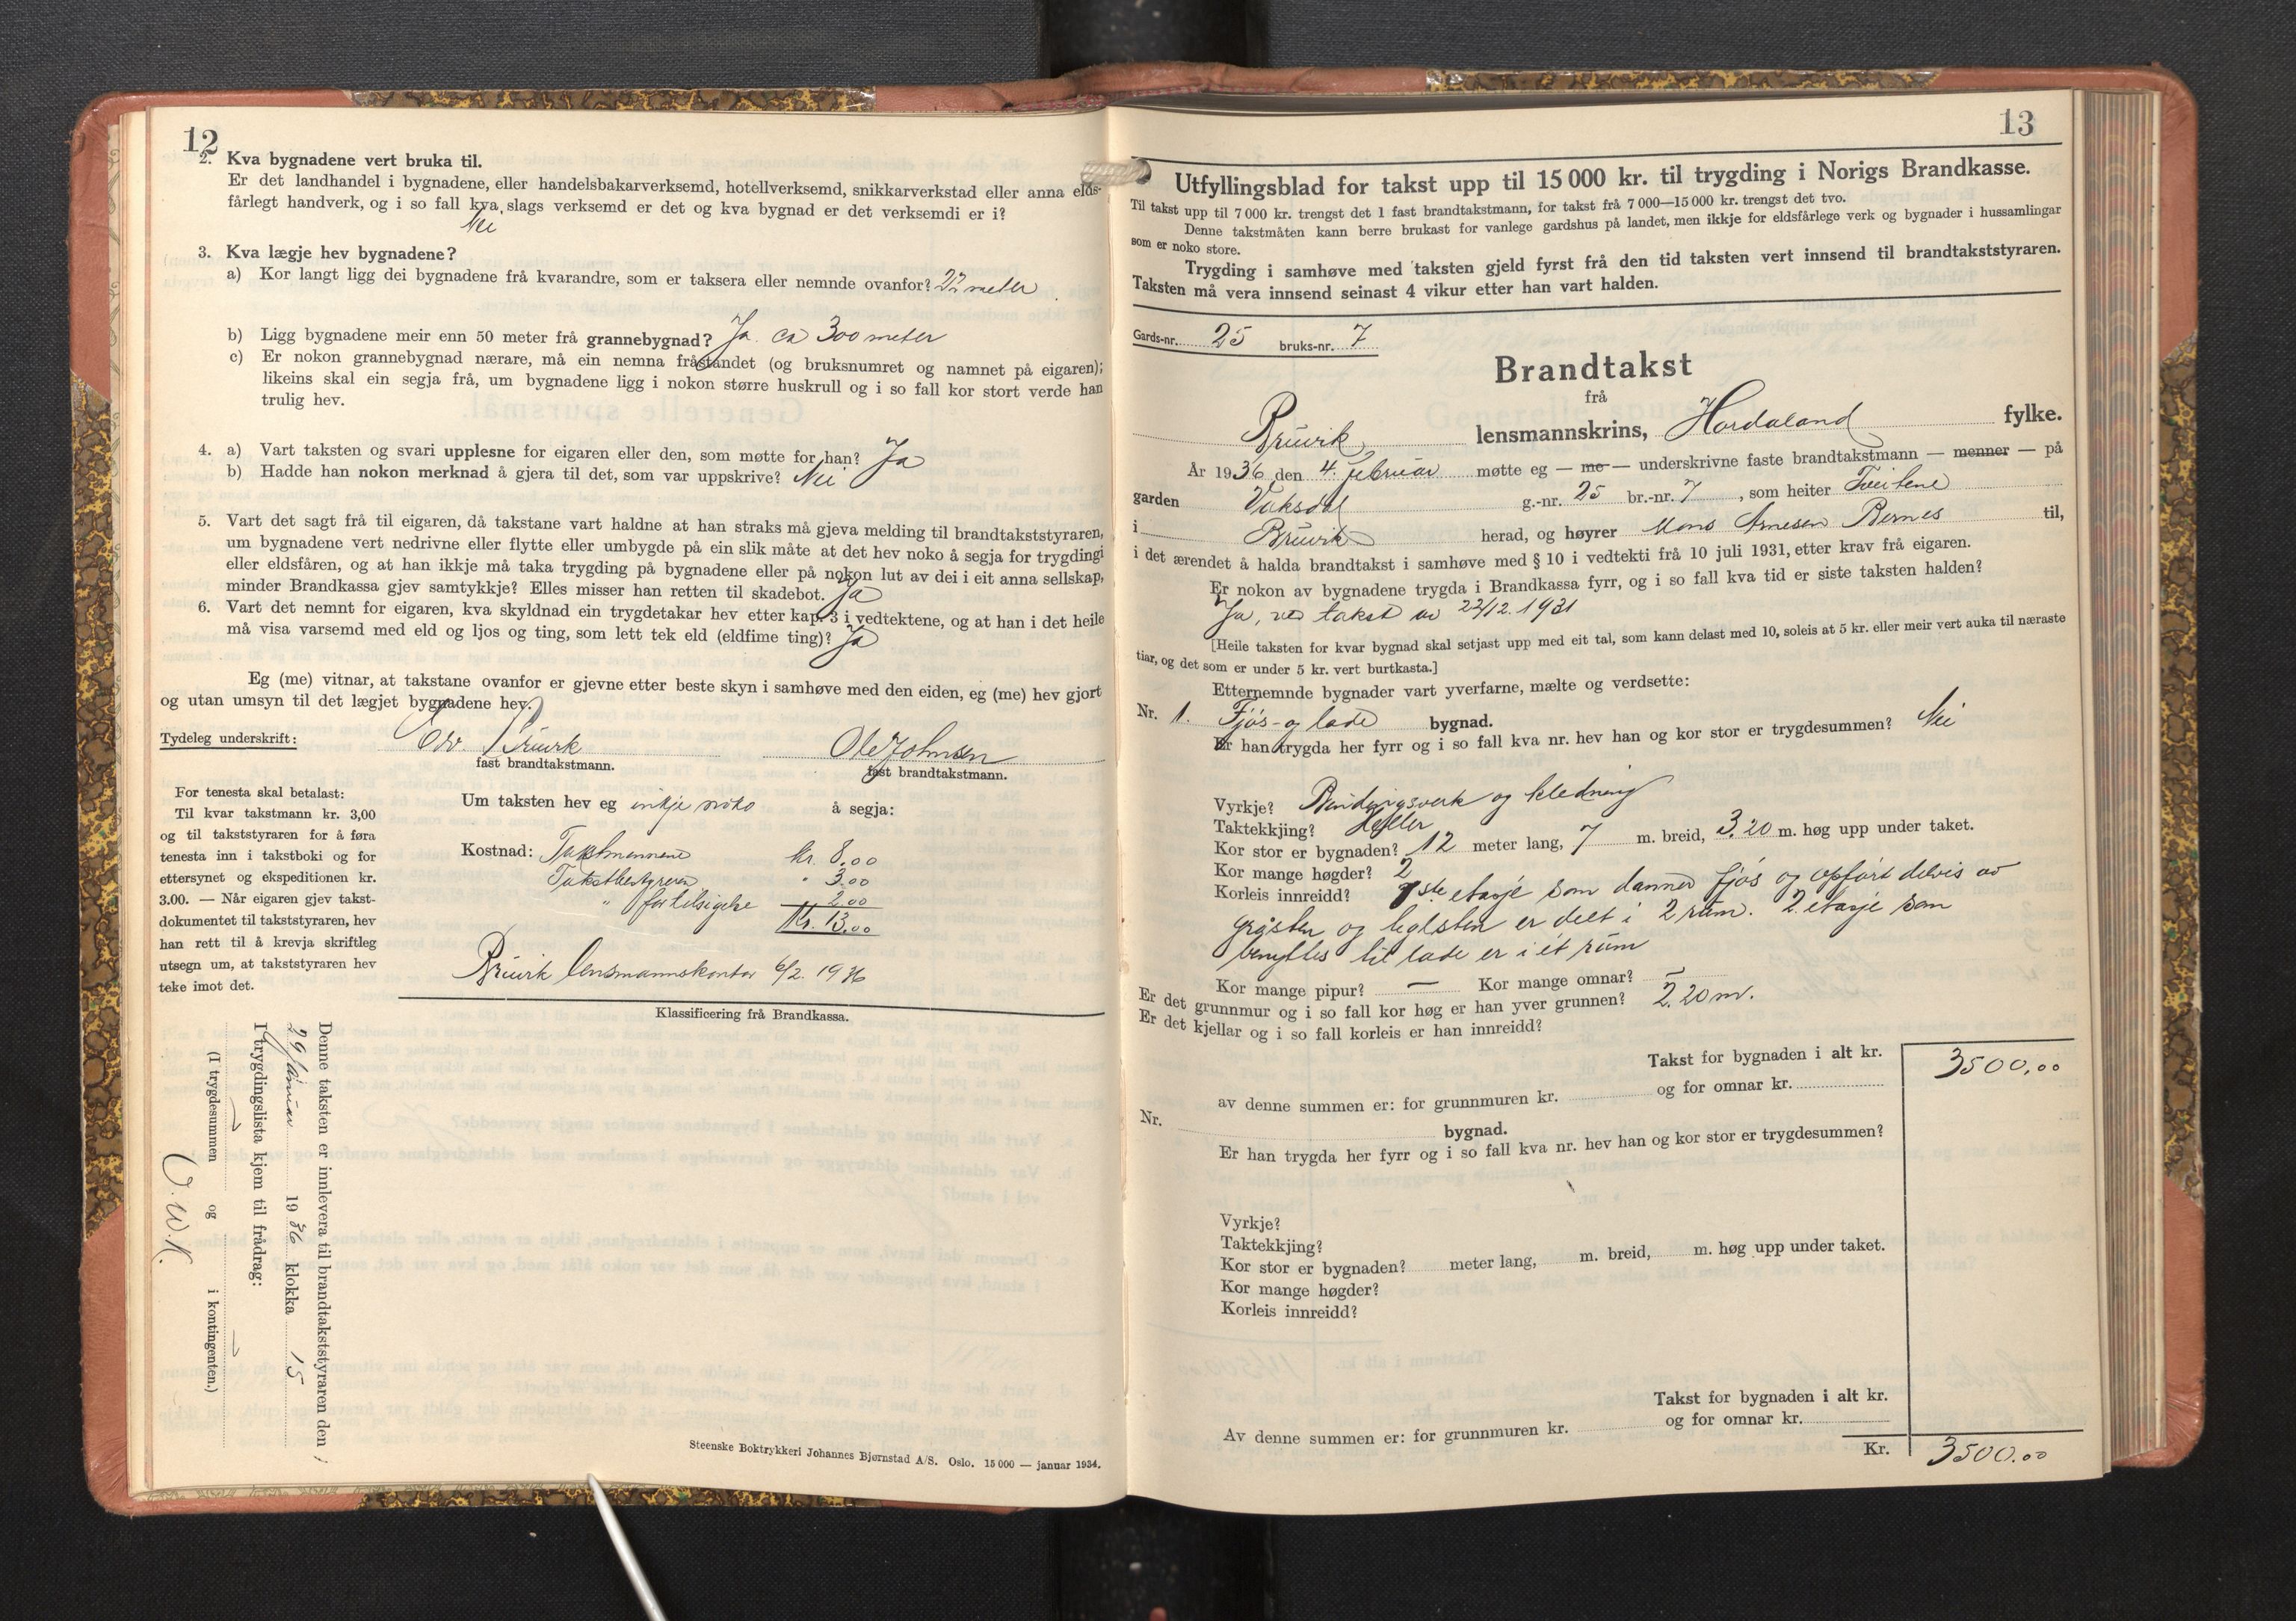 12
2. Kva bygnadene vert bruka til.
Er det landhandel i bygnadene, eller handelsbakarverksemd, hotellverksemd, snikkarverkstad eller anna elds-
fårlegt handverk, og i so fall kva slags verksemd er det og kva bygnad er det verksemdi er i?
Nei
3. Kva lægje hev bygnadene?
a) Kor langt ligg dei bygnadene frå kvarandre, som er taksera eller nemnde ovanfor? 22 meter
b) Ligg bygnadene meir enn 50 meter frå grannebygnad? Ja. ca 300 meter
c) Er nokon grannebygnad nærare, må ein nemna fråstandet (og bruksnumret og namnet på eigaren);
likeins skal ein segja frå, um bygnadene ligg i nokon større huskrull og i so fall kor stort verde han
trulig hev.
4. a) Vart taksten og svari upplesne for eigaren eller den, som møtte for han? Ja
b) Hadde han nokon merknad å gjera til det, som var uppskrive? Nei
5. Vart det sagt frå til eigaren, då takstane vart haldne at han straks må gjeva melding til brandtakststyraren,
um bygnadene vert nedrivne eller flytte eller umbygde på ein slik måte at det hev noko å segja for trygdingi
eller eldsfåren, og at han ikkje må taka trygding på bygnadene eller på nokon lut av dei i eit anna sellskap,
minder Brandkassa gjev samtykkje? Elles misser han retten til skadebot. Ja
6. Vart det nemnt for eigaren, kva skyldnad ein trygdetakar hev etter kap. 3 i vedtektene, og at han i det heile
må visa varsemd med eld og ljos og ting, som lett tek eld (eldfime ting)? Ja
Eg (me) vitnar, at takstane ovanfor er gjevne etter beste skyn i samhøve med den eiden, eg (me) hev gjort
og utan umsyn til det lægjet bygnadene hev.
Tydeleg underskrift: Edv. Bruvik Ole Johnsen
fast brandtakstmann. fast brandtakstmann.
For tenesta skal betalast:
Til kvar takstmann kr. 3,00
og til takststyraren for å føra
tenesta inn i takstboki og for
ettersynet og ekspeditionen kr.
3.00. — Når eigaren gjev takst-
dokumentet til takststyraren, hev
han rett til å krevja skriftleg
utsegn um, at takststyraren hev
teke imot det.
Um taksten hev eg inkje noko å segja:
Kostnad: Takstmennene kr. 8.00
Takstbestyreren " 3.00
" for tilsigelse 2.00
Kr. 13.00
Bruvik lensmannskontor 6/2. 1936
Klassificering frå Brandkassa.
Denne taksten er innlevera til brandtakststyraren den
29 januar 1936 klokka 15
I trygdingslista kjem til frådrag:
(I trygdesummen og i kontingenten.)
Steenske Boktrykkeri Johannes Bjørnstad A/S. Oslo. 15 000 — januar 1934.
13
Utfyllingsblad for takst upp til 15 000 kr. til trygding i Norigs Brandkasse.
Til takst upp til 7 000 kr. trengst det 1 fast brandtakstmann, for takst frå 7 000—15 000 kr. trengst det tvo.
Denne takstmåten kann berre brukast for vanlege gardshus på landet, men ikkje for eldsfårlege verk og bygnader i hussamlingar
som er noko store.
Trygding i samhøve med taksten gjeld fyrst frå den tid taksten vert innsend til brandtakststyraren.
Taksten må vera innsend seinast 4 vikur etter han vart halden.
Gards-nr. 25 bruks-nr. 7
Brandtakst
frå
Bruvik lensmannskrins, Hordaland fylke.
År 1936 den 4. februar møtte eg — me — underskrivne faste brandtakstmann — menner — på
garden Vaksdal g.-nr. 25 br.-nr. 7, som heiter Tveitene
i Bruvik herad, og høyrer Mons Arnesen Bernes til,
i det ærendet å halda brandtakst i samhøve med § 10 i vedtekti frå 10 juli 1931, etter krav frå eigaren.
Er nokon av bygnadene trygda i Brandkassa fyrr, og i so fall kva tid er siste taksten halden?
Ja, ved takst av 22/12. 1931
[Heile taksten for kvar bygnad skal setjast upp med eit tal, som kann delast med 10, soleis at 5 kr. eller meir vert auka til næraste
tiar, og det som er under 5 kr. vert burtkasta.]
Etternemnde bygnader vart yverfarne, mælte og verdsette:
Nr. 1. Fjøs- og lade bygnad.
Er han trygda her fyrr og i so fall kva nr. hev han og kor stor er trygdesummen? Nei
Vyrkje? Bindingsverk og kledning
Taktekkjing? Heller
Kor stor er bygnaden? 12 meter lang, 7 m. breid, 3.20 m. høg upp under taket.
Kor mange høgder? 2
Korleis innreidd? 1ste etasje som danner fjøs og opført delvis av
gråsten og teglsten er delt i 2 rum. 2. etasje som
benyttes til lade er i ét rum
Kor mange pipur? — Kor mange omnar? —
Er det grunnmur og i so fall kor høg er han yver grunnen? 2.20 m.
Er det kjellar og i so fall korleis er han innreidd?
Takst for bygnaden i alt kr. 3500.00
av denne summen er: for grunnmuren kr. og for omnar kr.
Nr. bygnad.
Er han trygda her fyrr og i so fall kva nr. hev han og kor stor er trygdesummen?
Vyrkje?
Taktekkjing?
Kor stor er bygnaden? meter lang, m. breid, m. høg upp under taket.
Kor mange høgder?
Korleis innreidd?
Takst for bygnaden i alt kr.
Av denne summen er: for grunnmuren kr. og for omnar kr.
Kr. 3500.00